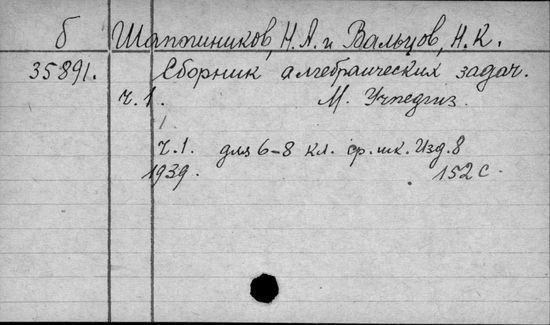 б Шапошников, Н.А. и Вальцов, Н.К.
35891. Сборник алгебраических задач.
ч.1. М. Учпедгиз.
ч.1. для 6-8 кл. ср. шк. Изд. 8
1939. 152 с.